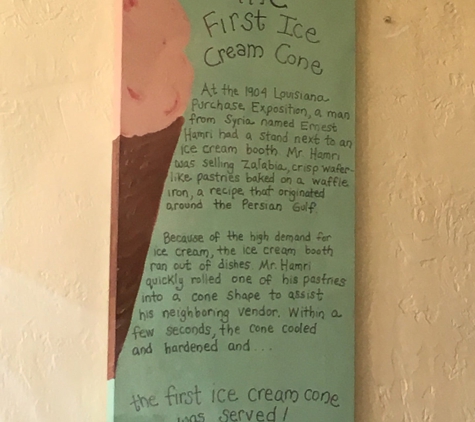 The
First Ice
Cream Cone
At the 1904 Louisiana
Purchase Exposition, a man
from Syria named Ernest
Hamri had a stand next to an
ice cream booth Mr. Hamri
was selling Zalabia, crisp wafer-
like pastries baked on a waffle
iron, a recipe that originated
around the Persian Gulf.
Because of the high demand for
ice cream, the ice cream booth
ran out of dishes Mr. Hamri
quickly rolled one of his pastries
into a cone shape to assist
his neighboring vendor. Within a
few seconds, the cone cooled
and hardened and...
the first ice cream cone
was served!